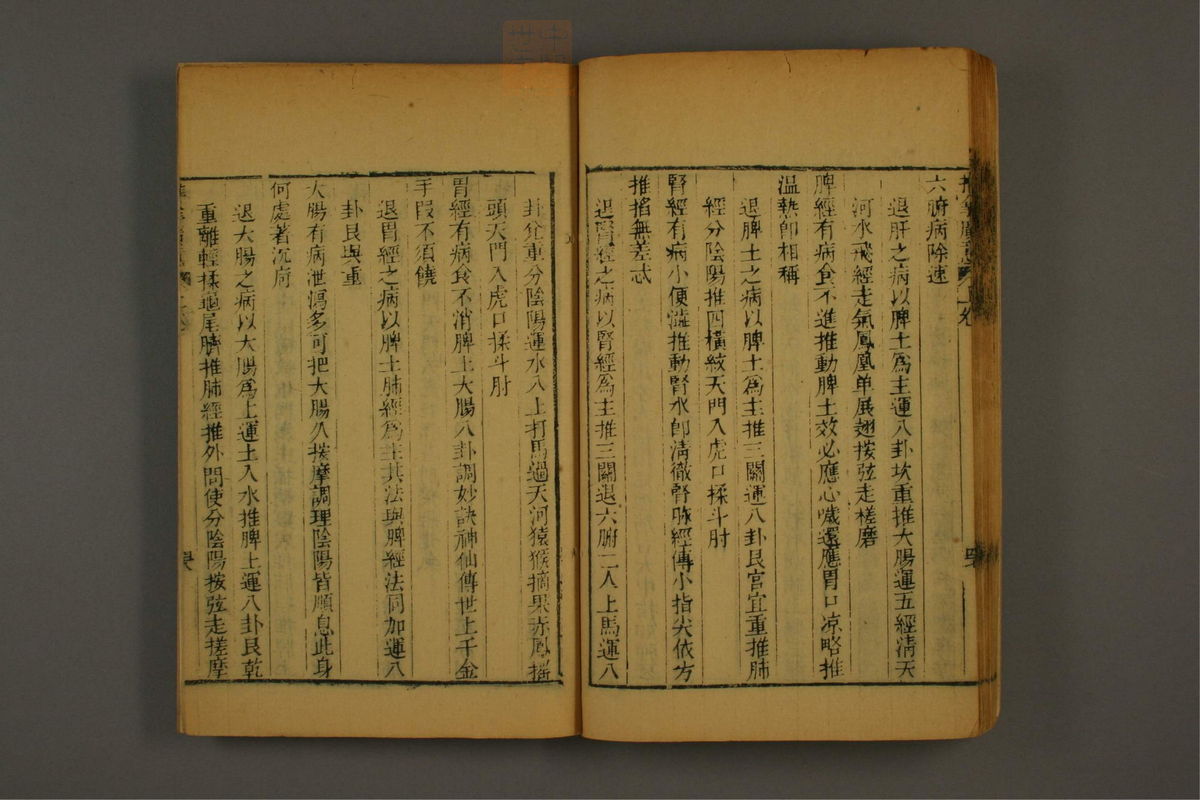 六腑病除速
退肝之病以脾土爲主運八卦坎重推大腸運五經淸天
河水飛經走氣鳳凰单展翅按弦走槎磨
脾經有病食不進推動脾土效必應心噦還應胃口凉略推
温熱即相稱
退脾土之病以脾土爲主推三關運八卦艮宫宜重推肺
經分陰陽推四橫紋天門入虎口揉斗肘
腎經有病小便澁推動腎水即淸徹腎脉經傳小指尖依方
推掐無差忒
退腎經之病以腎經爲主推三關退六腑二人上馬運八
卦兊重分陰陽運水入土打馬過天河猿猴摘果赤鳳搖
頭天門入虎口揉斗肘
胃經有病食不消脾土大腸八卦調妙訣神仙傳世上千金
手叚不須饒
退胃經之病以脾土肺經爲主其法與脾經法同加運八
卦艮與重
大腸有病泄瀉多可把大腸久按摩調理陰陽皆順息此身
何處著沉疴
退大腸之病以大腸爲主運土入水推脾土運八卦艮乾
重離輕揉龜尾臍推肺經推外間使分陰陽按弦走搓摩